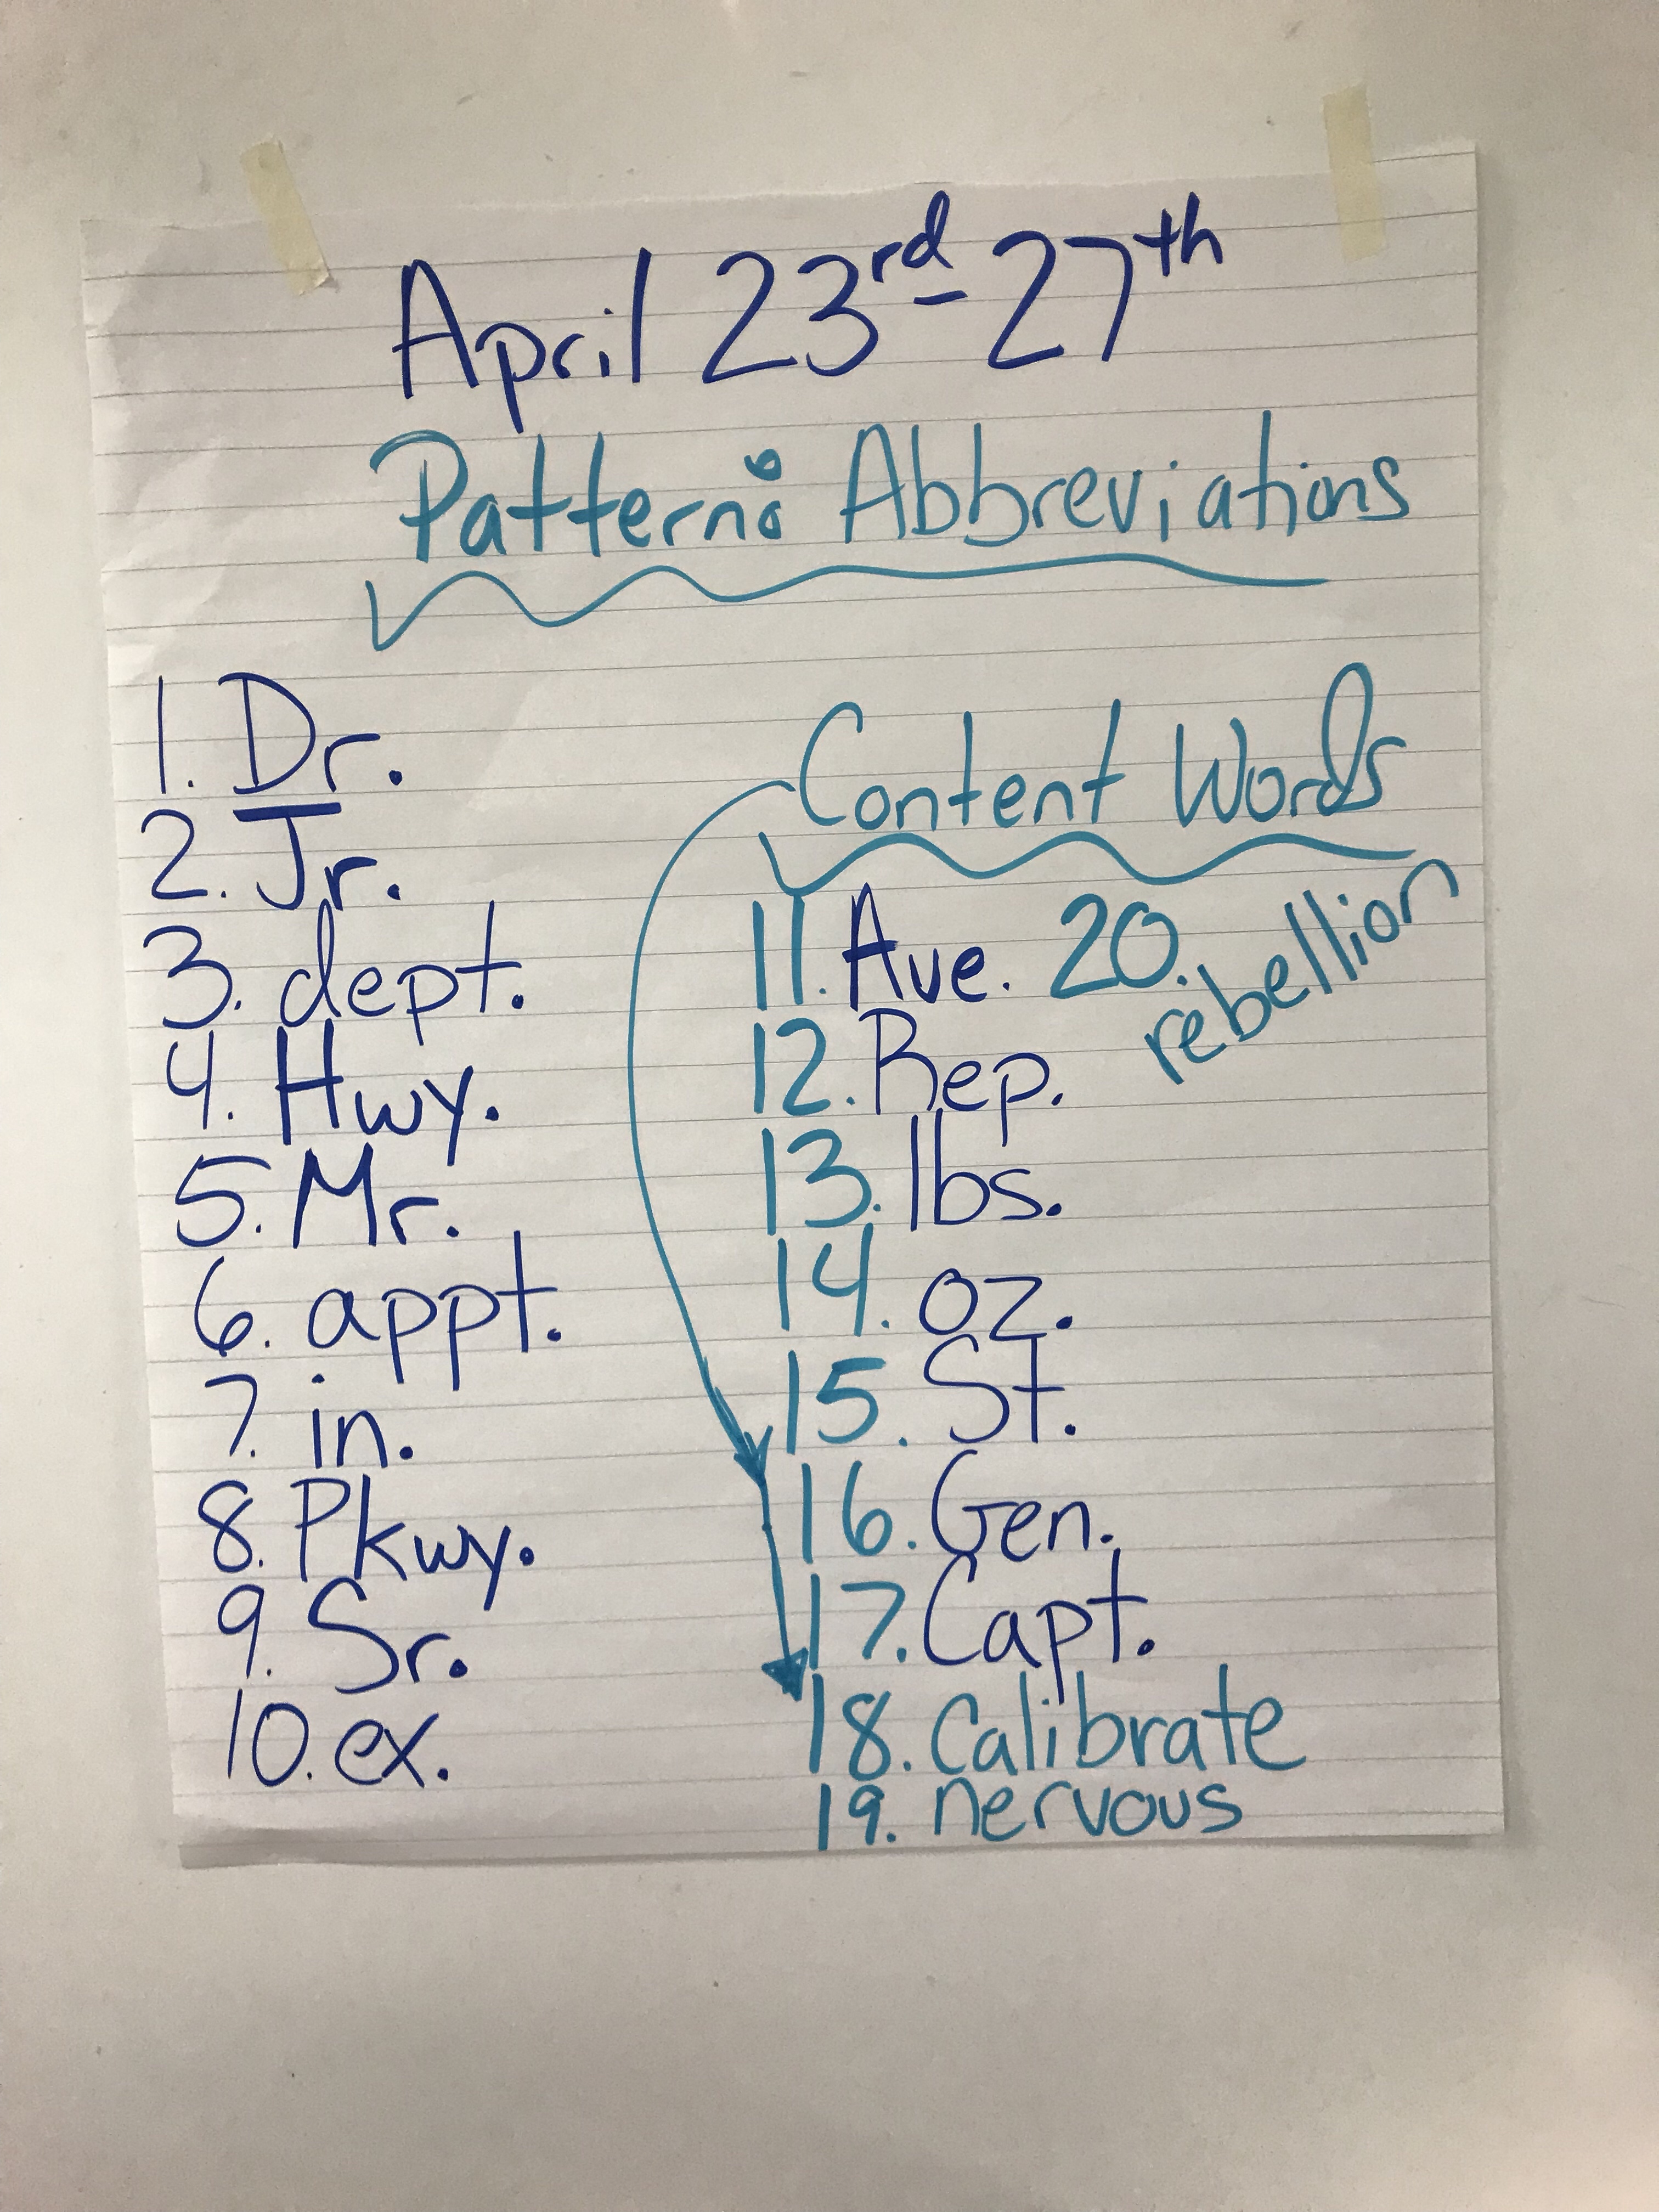 April 23rd-27th
Pattern: Abbreviations
1. Dr.
2. Jr.
3. dept.
4. Hwy.
5. Mr.
6. appt.
7. in.
8. Pkwy.
9. Sr.
10. ex.
Content Words
11. Ave.
12. Rep.
13. lbs.
14. oz.
15. St.
16. Gen.
17. Capt.
18. Calibrate
19. nervous
20. rebellion